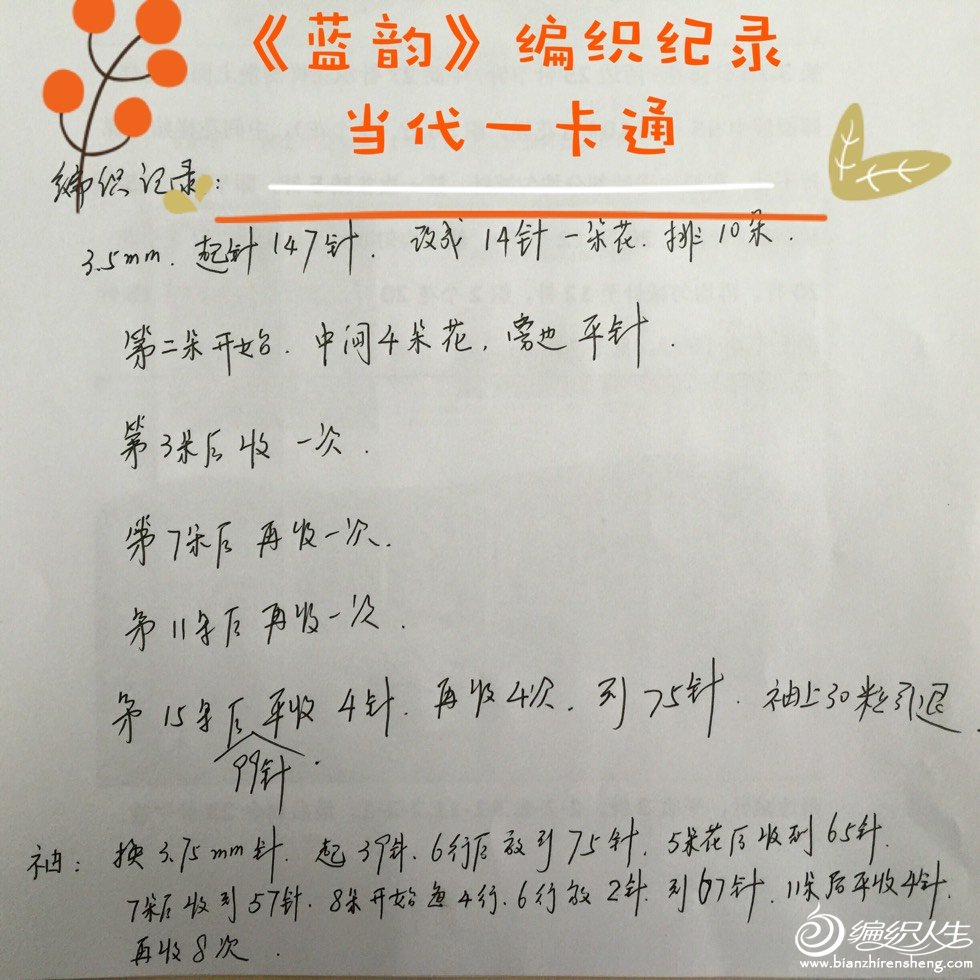 《蓝韵》编织纪录
当代一卡通
编织记录：
3.5mm. 起针147针. 改成14针一朵花. 排10朵.
第二朵开始. 中间4朵花, 旁边平针.
第3朵后收一次.
第7朵后再收一次.
第11朵后再收一次.
第15朵后平收4针. 再收4次. 到75针. 袖上30粒引退.
99针.
袖: 换3.75mm针. 起39针. 6行后放到75针. 5朵花后收到65针.
7朵后收到57针. 8朵开始每4行. 6行放2针. 到67针. 11朵后平收4针.
再收8次.
编织人生
www.bianzhirensheng.com